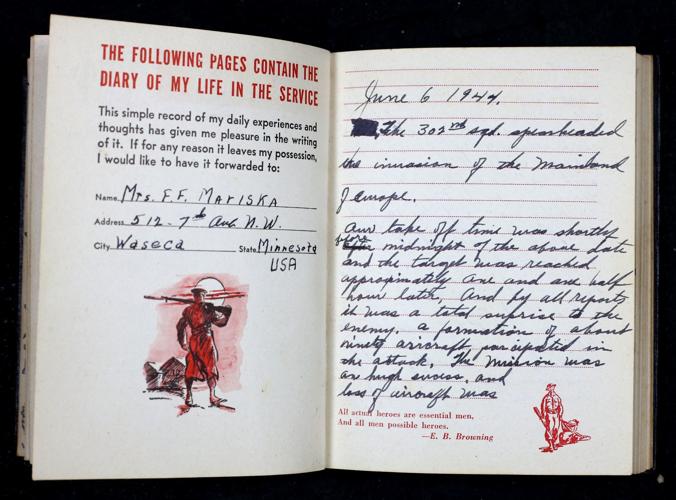 THE FOLLOWING PAGES CONTAIN THE
DIARY OF MY LIFE IN THE SERVICE
This simple record of my daily experiences and
thoughts has given me pleasure in the writing
of it. If for any reason it leaves my possession,
I would like to have it forwarded to:
Name Mrs. F.F. Mariska
Address 512 - 7th Ave N.W.
City Waseca State Minnesota
USA
June 6 1944.
The 302nd sqd. spearheaded
the invasion of the Mainland
of europe.
Our take off time was shortly
midnight of the above date
and the target was reached
approximately one and one half
hour later, And by all reports
it was a total suprise to the
enemy. a formation of about
ninety aircraft participated in
the attack. The Mission was
an hugh sucess, and
loss of aircraft was
All actual heroes are essential men,
And all men possible heroes.
—E. B. Browning